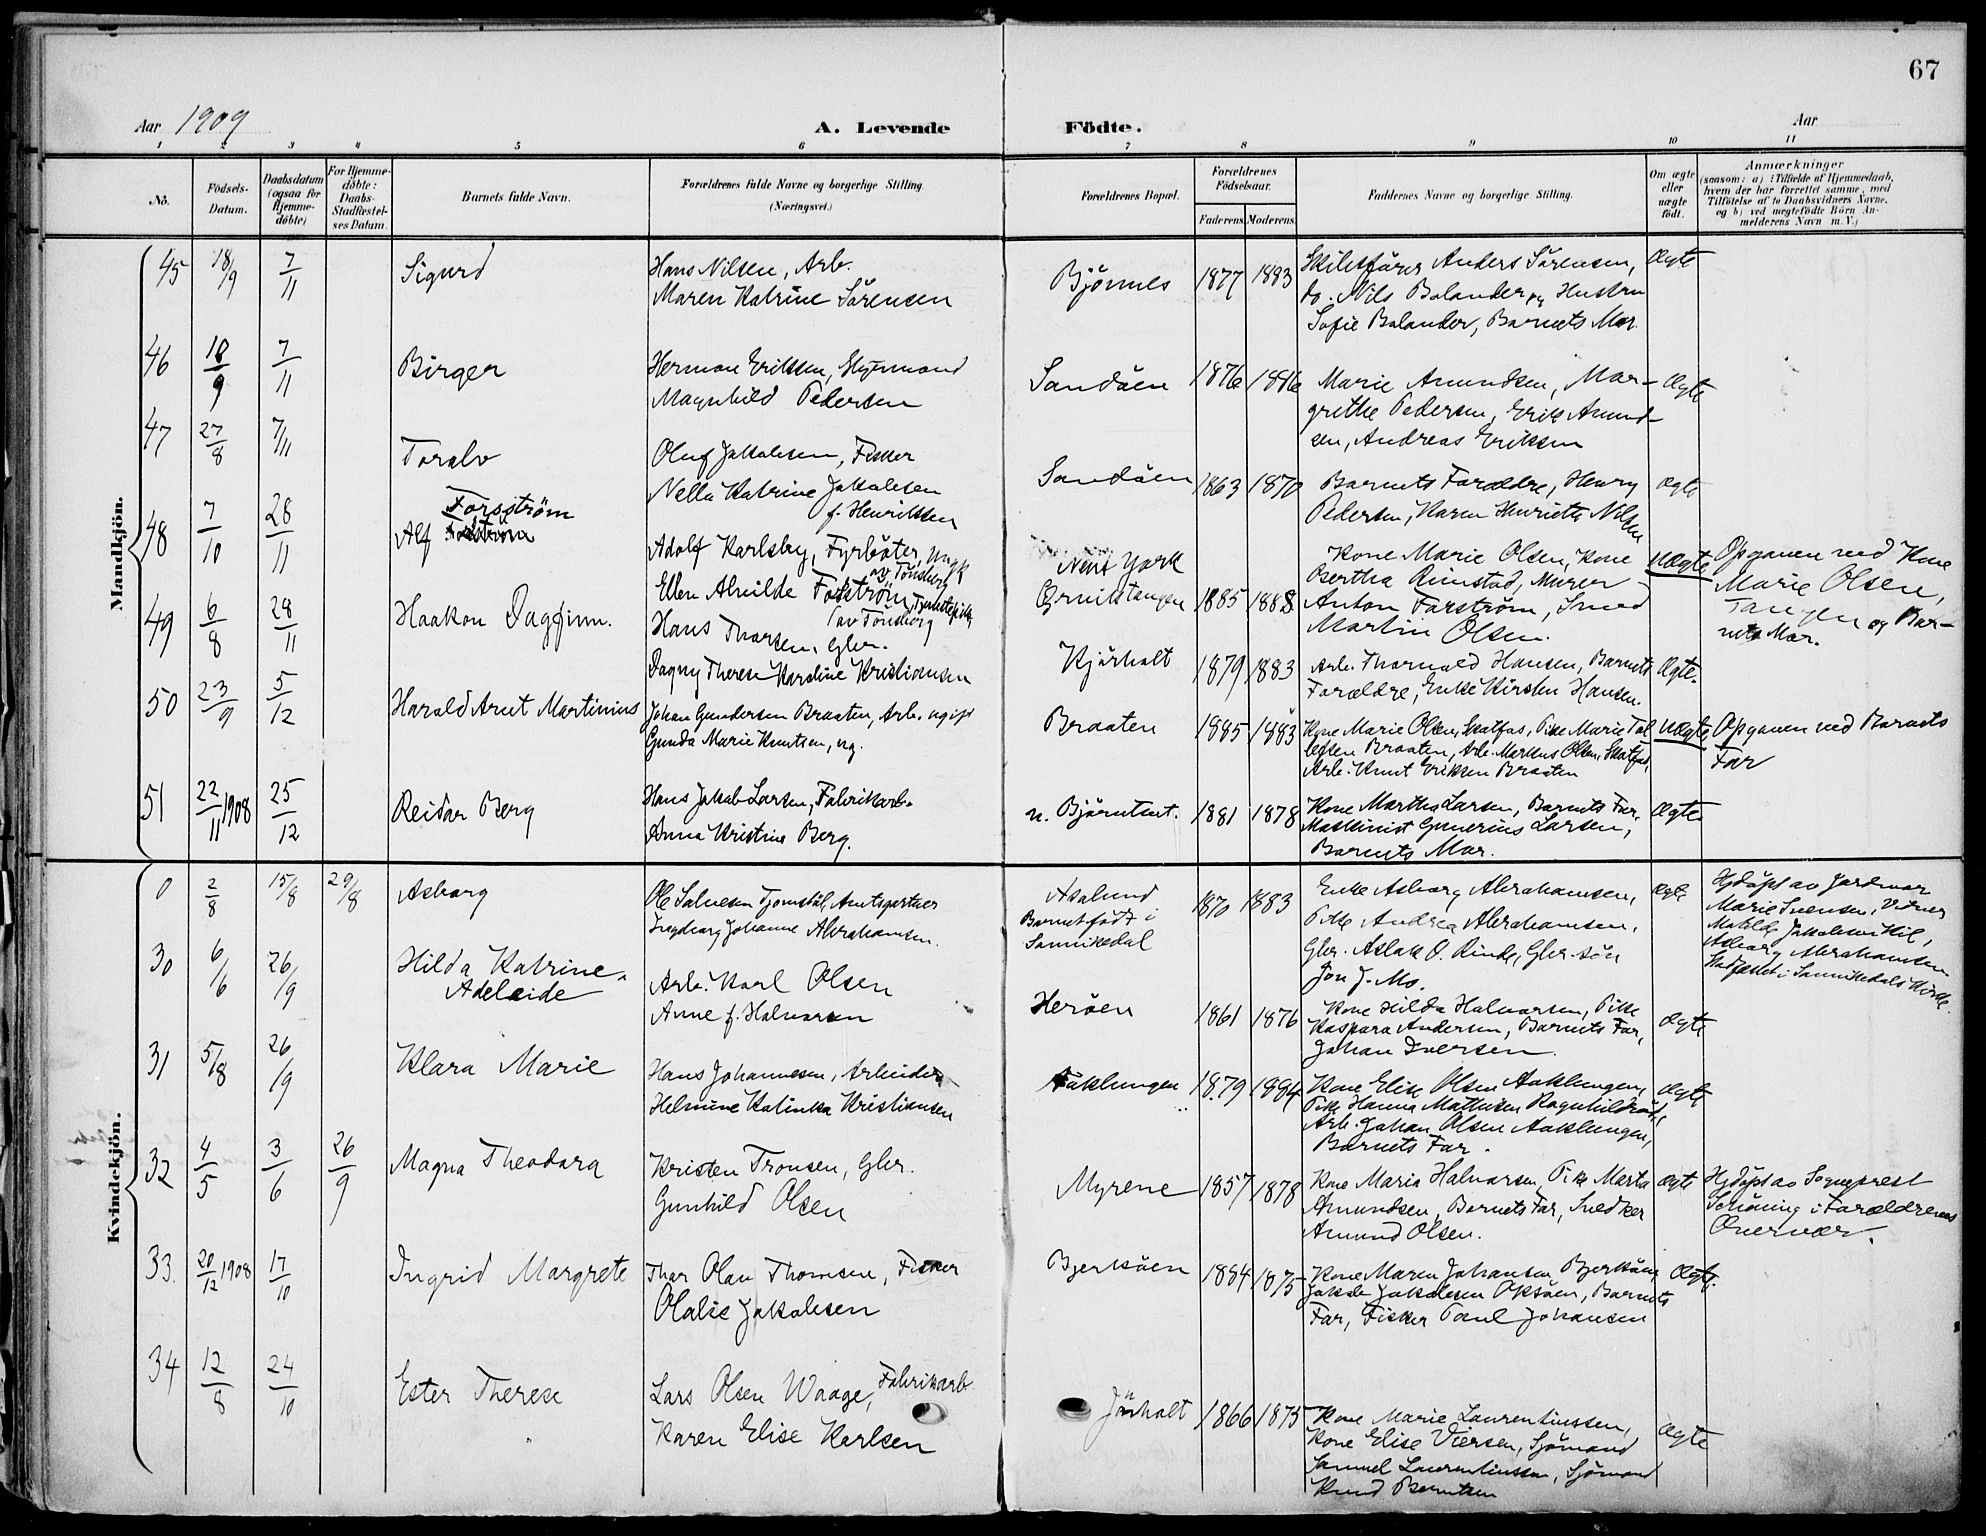 67
Aar 1909
A. Levende Födte.
Aar
1 2 3 4 5 6 7 8 9 10 11
No.
Födsels-Datum.
Daabsdatum (ogsaa for Hjemme-döbte)
For Hjemme-döbte: Daabs-Stadfæstel-ses Datum.
Barnets fulde Navn.
Forældrenes fulde Navne og borgerlige Stilling.
(Næringsvei.)
Forældrenes Bopæl.
Forældrenes Födselsaar.
Faderens. Moderens.
Faddernes Navne og borgerlige Stilling.
Om ægte eller uægte födt.
Anmærkninger
(saasom: a) i Tilfælde af Hjemmedaab,
hvem der har forrettet samme, med
Tilföielse af to Daabsvidners Navne,
og b) ved uægtefödte Börn An-
melderens Navn m. V.)
Mandkjön.
45 18/9 7/11 Sigurd
Hans Nilsen, Arb.
Maren Katrine Sörensen
Björnnes 1877 1883
Anders Sörensen,
do. Nils Bolander og Hustru
Sofie Bolander, Barnets Mor.
Ægte
46 18/9 7/11 Birger
Herman Eriksen, Styrmand
Magnhild Pedersen
Sandöen 1876 1886
Marie Amundsen, Mar-
grethe Pedersen, Erik Amund-
sen, Andreas Eriksen
Ægte
47 27/8 7/11 Toralv
Oluf Jakobsen, Fisker
Nella Katrine Jakobsen
f. Henriksen
Sandöen 1863 1870
Barnets Forældre, Henry
Pedersen, Karen Henriette Nilsen
Ægte
48 7/10 28/11 Alf Forsström
Adolf Karlsby, Fyrböter, Ungk
av Tönsberg
Ellen Alvilde Forström, Tjenestepike
av Tönsberg
New York
Örvikstangen 1885 1888
Kone Marie Olsen, Kone
Bertha Rimstad, Murer
Anton Farström, Smed
Martin Olsen.
Uægte
Opgaven ved Kone
Marie Olsen,
Tangen og Bar-
nets Mor.
49 6/8 28/11 Haakon Dagfinn.
Hans Thorsen, Gbr.
Dagny Therese Karoline Kristiansen
Kjörholt 1879 1883
Arb. Thorvald Hansen, Barnets
Forældre, Enke Kirsten Hansen.
Ægte.
50 23/9 5/12 Harald Arnt Martinius
Johan Gundersen Braaten, Arb. ugift
Gunda Marie Knutsen, ug.
Braaten 1885 1883
Kone Marie Olsen, Skotfos, Pike Marie Tol
lefsen Braaten, Arb. Markus Olsen, Skotfos,
Arb. Knut Eriksen Braaten
Uægte
Opgaven ved Barnets
Far
51 22/11 1908 25/12 Reidar Berg
Hans Jakob Larsen, Fabrikarb.
Anna Kristine Berg.
n. Björntvet. 1881 1878
Kone Martha Larsen, Barnets Far,
Maskinist Gunerius Larsen,
Barnets Mor.
Ægte
Kvindekjön.
0 2/8 15/8 29/8 Asborg
Ole Salvesen Tjomstöl, Amtsgartner
Ingeborg Johanne Abrahamsen.
Aasalund
Barnet födt i
Sannikedal
1870 1883
Enke Asborg Abrahamsen,
Pike Andrea Abrahamsen,
Gbr. Aslak O. Rinde, Gbr-sön
Jon J. Mo.
Ægte
Hjdöpt av Jordmor
Marie Svensen, Vidner
Matilde Jakobsen Kil,
Asborg Abrahamsen
Stadfæstet i Sannikedals Kirke.
30 6/6 26/9 Hilda Katrine
Adeleide
Arb. Karl Olsen
Anne f. Halvorsen
Heröen 1861 1876
Kone Hilda Halvorsen, Pike
Kaspara Andersen, Barnets Far,
Johan Iversen.
Ægte
31 5/8 26/9 Klara Marie
Hans Johannesen, Arbeider
Helmine Katinka Kristiansen
Aaklungen 1879 1884
Kone Elise Olsen Aaklungen,
Pike Hanna Mathisen Ragnhildröd,
Arb. Johan Olsen Aaklungen,
Barnets Far.
Ægte
32 4/5 3/6 26/9 Magna Theodora
Kristen Tronsen, Gbr.
Gunhild Olsen
Myrene 1857 1878
Kone Maria Halvorsen, Pike Marta
Amundsen, Barnets Far, Snedker
Amund Olsen.
Ægte
Hjdöpt av Sogneprest
Schöning i Forældrenes
Overvær.
33. 20/12 1908 17/10 Ingrid Margrete
Thor Olav Thomsen, Fisker
Olalie Jakobsen
Bjerköen 1884 1875
Kone Maren Johansen Bjerköen,
Jakob Jakobsen Oksöen, Barnets
Far, Fisker Paul Johansen
Ægte.
34 12/8 24/10 Ester Therese
Lars Olsen Waage, Fabrikarb.
Karen Elise Karlsen
Jönholt 1866 1875
Kone Marie Laurentiussen,
Kone Elise Viersen, Sjömand
Samuel Laurentiussen, Sjömand
Knud Berntsen
Ægte